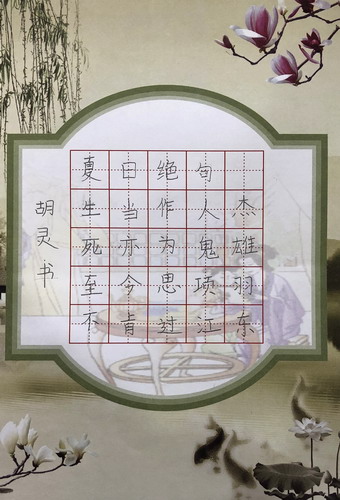 夏日绝句
生当作人杰
死亦为鬼雄
至今思项羽
不肯过江东
胡灵书